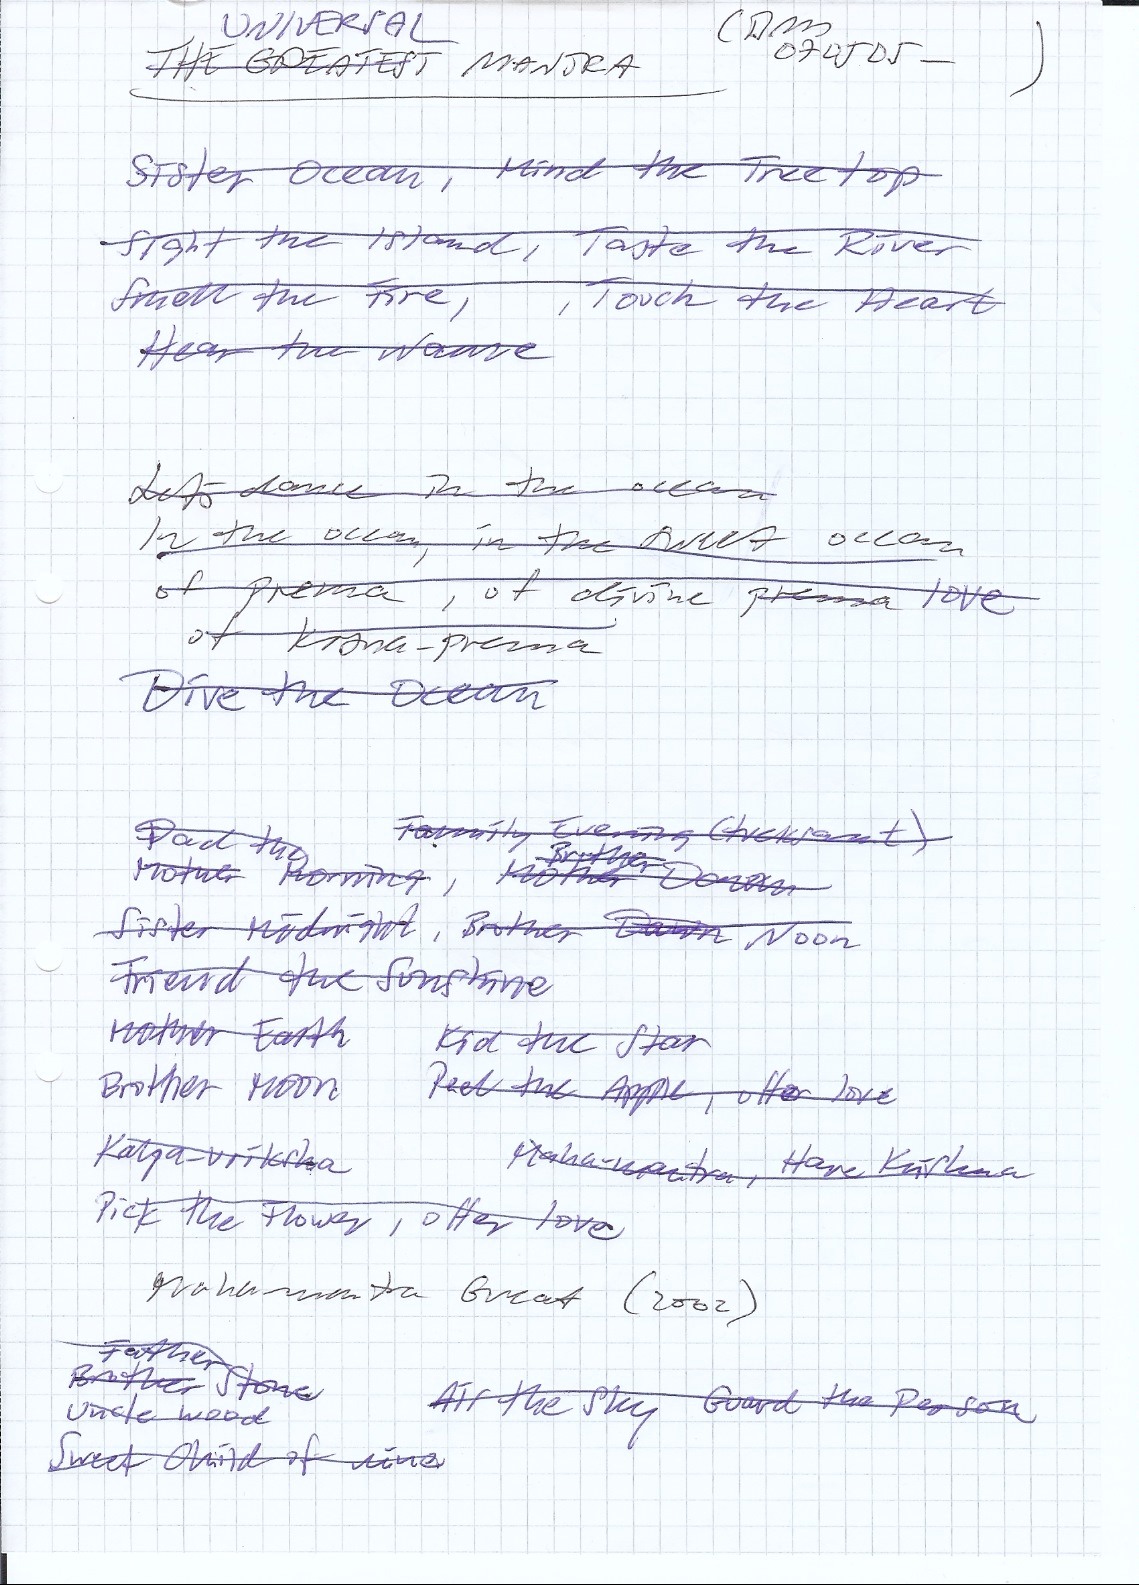 UNIVERSAL
THE GREATEST MANTRA (DM 070505 - )
Sister Ocean, Mind the Treetop
Sight the Island, Taste the River
Smell the Fire, , Touch the Heart
Hear the
Let's dance in the ocean
In the ocean, in the sweet ocean
of prema, of divine prema love
of krsna-prema
Dive the Ocean
Dad the Family Evening
Mother Morning, Mother Brother
Sister Midnight, Brother Dawn Noon
Friend the Sunshine
Mother Earth Kid the Star
Brother Moon Peel the Apple, offer love
Kalpa-vriksha Maha-mantra, Hare Krishna
Pick the Flower, offer love
Maha-mantra Great (2002)
Father
Brother Stone
Uncle wood Air the Sky Guard the Person
Sweet Child of mine